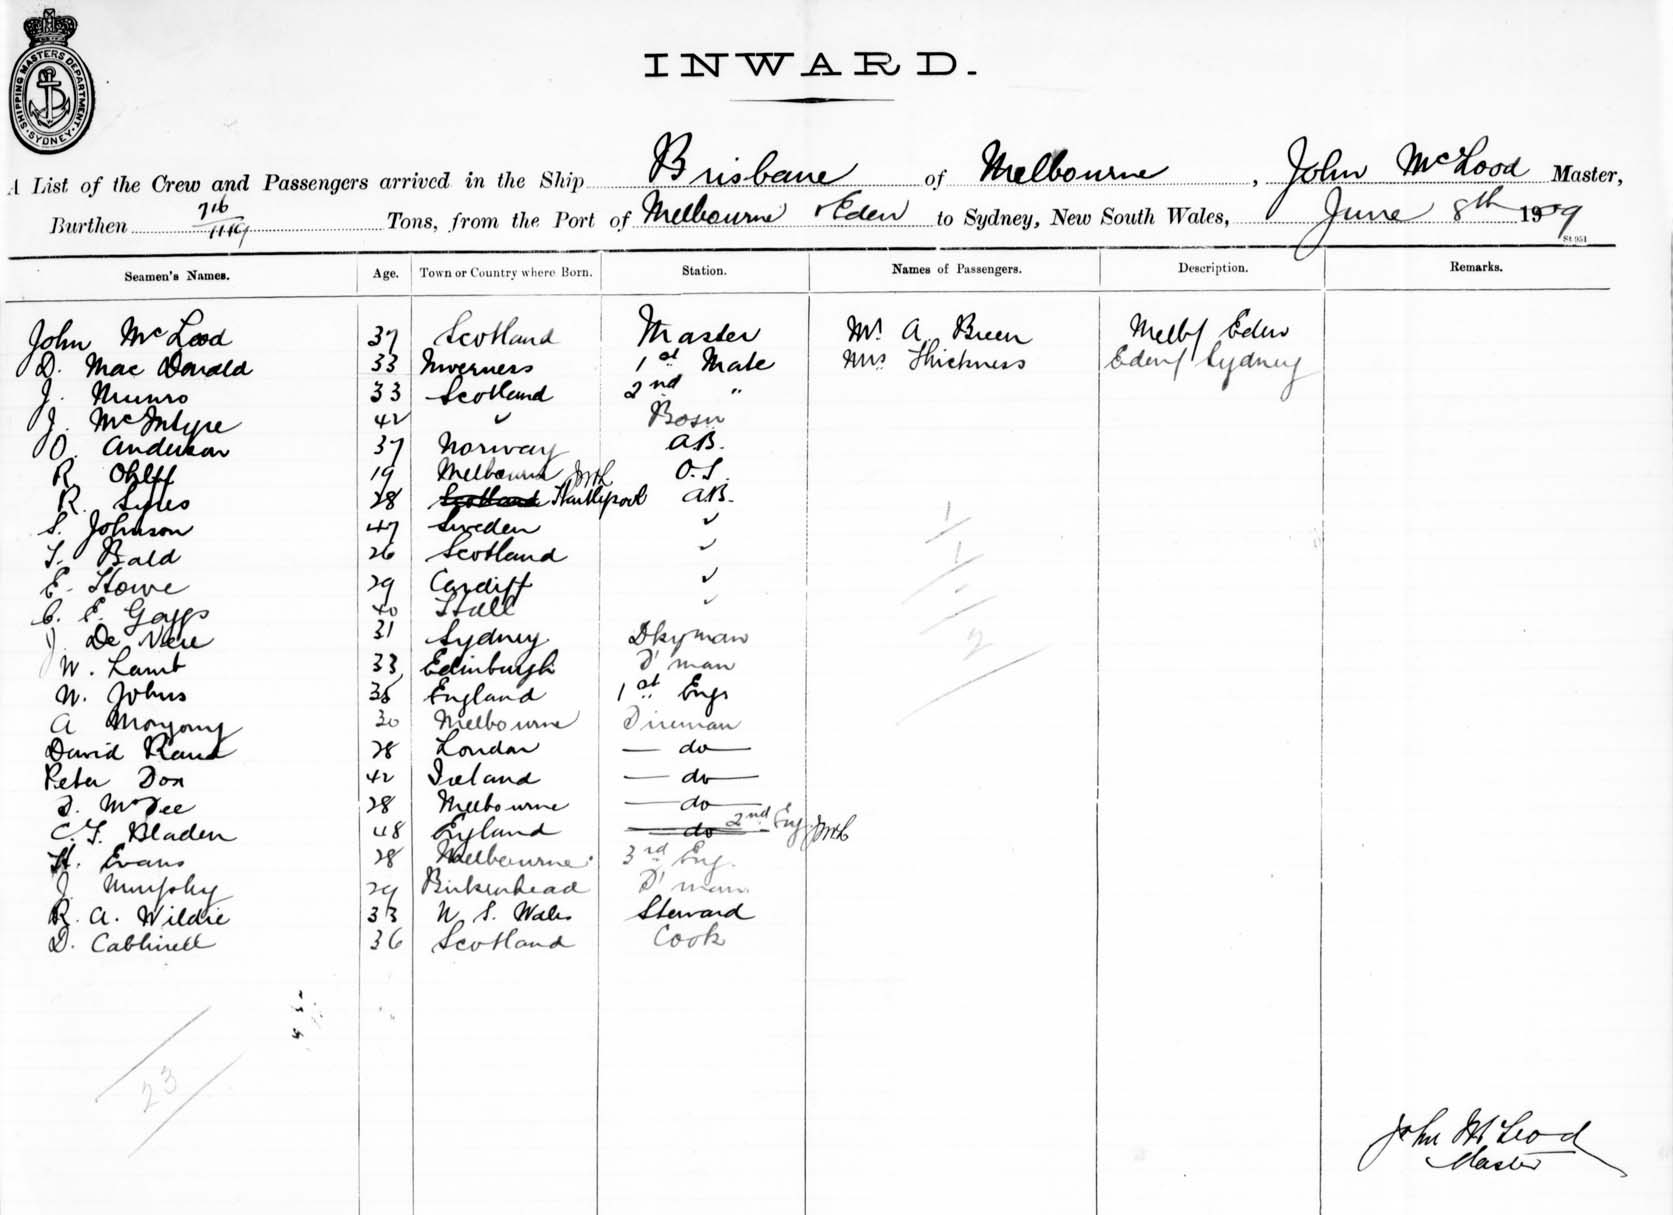 SHIPPING MASTERS DEPARTMENT. SYDNEY
INWARD.
A List of the Crew and Passengers arrived in the Ship Brisbane of Melbourne, John McLeod Master,
Burthen 716/1119 Tons, from the Port of Melbourne & Eden to Sydney, New South Wales, June 8th 1909
St 951
Seamen's Names. Age. Town or Country where Born. Station. Names of Passengers. Description. Remarks.
John McLeod 37 Scotland Master Mr. A. Breen Melb/ Eden
D. Mac Donald 33 Inverness 1st Mate Mrs. Thickness Eden/ Sydney
J. Munro 33 Scotland 2nd "
J. McIntyre 42 " Bosn
O. Anderson 37 Norway A.B.
R. Ohlff 19 Melbourne O.S.
R. 28 Scotland Hartlepool A.B.
S. Johnson 47 Sweden "
T. Bald 26 Scotland "
E. Howe 29 Cardiff "
C. E. 40 Hull "
J. De Vere 31 Sydney Dkyman
W. Lamb 33 Edinburgh F'man
W. Johns 35 England 1st Engr
A 30 Melbourne Fireman
David Rand 28 London — do —
Peter Don 42 Ireland — do —
J. McFee 28 Melbourne — do —
C. F. Bladen 48 England do 2nd Eng
H. Evans 28 Melbourne. 3rd Eng.
J. Murphy 29 Birkenhead F'man
R. A. Wildie 33 N. S. Wales Steward
D. 36 Scotland Cook
1
1
2
23
John McLeod
Master